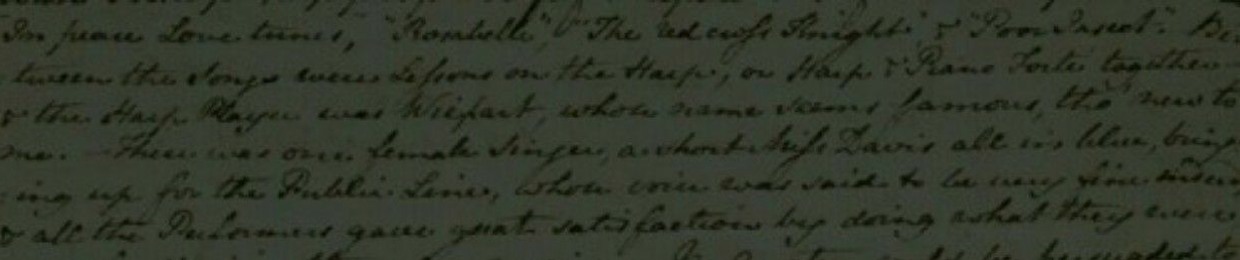 In peace Love tunes," "Rosabelle", "The red cross Knight" & "Poor Insect". Be=
tween the Songs were Lessons on the Harp, or Harp & Piano Forte together—
& the Harp Player was Wiepart, whose name seems famous, tho' new to
me.— There was one female Singer, a short Miss Davis all in blue, bring
ing up for the Public Line, whose voice was said to be very fine indeed
& all the Performers gave great satisfaction by doing what they were